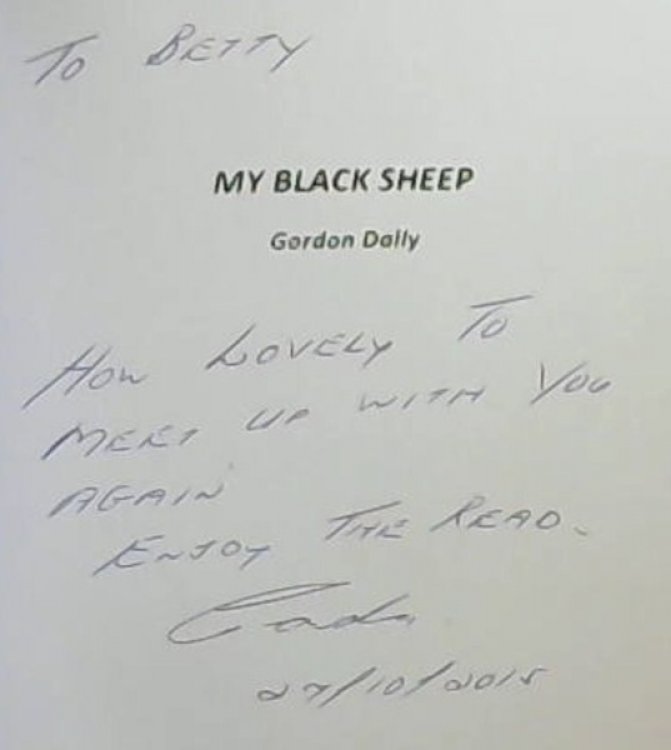 To BETTY
MY BLACK SHEEP
Gordon Dally
How LOVELY To
MEET UP WITH YOU
AGAIN
ENJOY THE READ.
27/10/2015